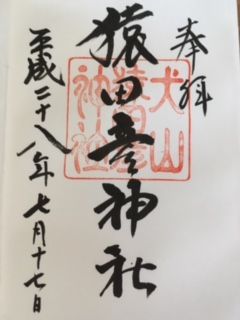 奉拝
猿田彦神社
犬山
猿田彦
神社
平成二十八年七月十七日